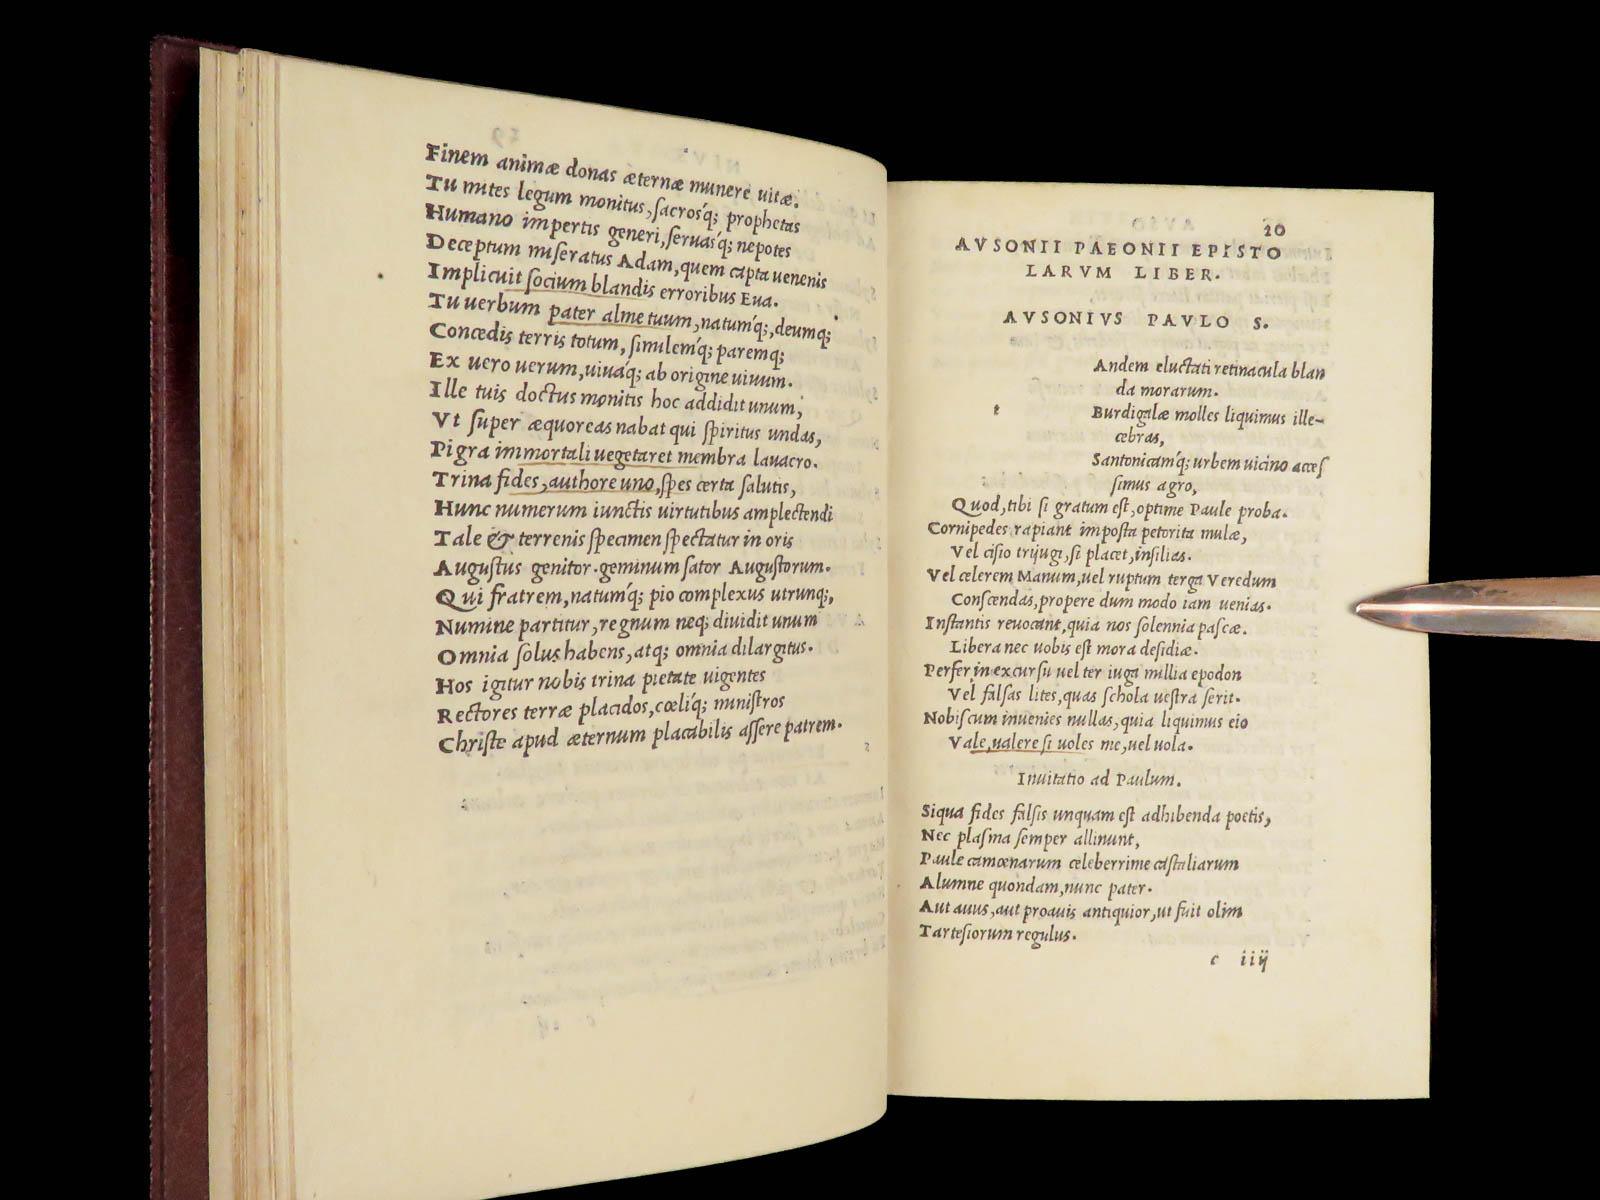 Finem animæ donas æternæ munere uitæ.
Tu mites legum monitus, ſacrosq́; prophetas
Humano impertis generi, ſeruasq́; nepotes
Deceptum miſeratus Adam, quem capta uenenis
Implicuit ſocium blandis erroribus Eua.
Tu uerbum pater alme tuum, natumq́;, deumq;
Concedis terris totum, ſimilemq́; paremq;
Ex uero uerum, uiuáq; ab origine uiuum.
Ille tuis doctus monitis hoc addidit unum,
Vt ſuper æquoreas nabat qui ſpiritus undas,
Pigra immortali uegetaret membra lauacro.
Trina fides, authore uno, ſpes certa ſalutis,
Hunc numerum iunctis uirtutibus amplectendi
Tale & terrenis ſpecimen ſpectatur in oris
Auguſtus genitor. geminum ſator Auguſtorum.
Qui fratrem, natumq́; pio complexus utrunq;,
Numine partitur, regnum neq; diuidit unum
Omnia ſolus habens, atq; omnia dilargitus.
Hos igitur nobis trina pietate uigentes
Rectores terræ placidos, cœliq́; miniſtros
Chriſte apud æternum placabilis aſſere patrem.
20
AVSONII PAEONII EPISTO
LARVM LIBER.
AVSONIVS PAVLO S.
t
Andem eluctati retinacula blan
da morarum.
Burdigalæ molles liquimus ille-
cebras,
Santonicamq́; urbem uicino acceſ
ſimus agro,
Quod, tibi ſi gratum eſt, optime Paule proba.
Cornipedes rapiant impoſta petorita mulæ,
Vel ciſio trijugi, ſi placet, inſilias.
Vel celerem Manum, uel ruptum terga Veredum
Conſcendas, propere dum modo iam uenias.
Inſtantis reuocant, quia nos ſolennia paſcæ.
Libera nec uobis eſt mora deſidiæ.
Perfer in excurſu uel ter iuga millia epodon
Vel falſas lites, quas ſchola ueſtra ſerit.
Nobiſcum inuenies nullas, quia liquimus eio
Vale, ualere ſi uoles me, uel uola.
Inuitatio ad Paulum.
Siqua fides falſis unquam eſt adhibenda poetis,
Nec plaſma ſemper allinunt,
Paule camœnarum celeberrime caſtaliarum
Alumne quondam, nunc pater.
Aut auus, aut proauis antiquior, ut fuit olim
Tarteſiorum regulus.
c iiij